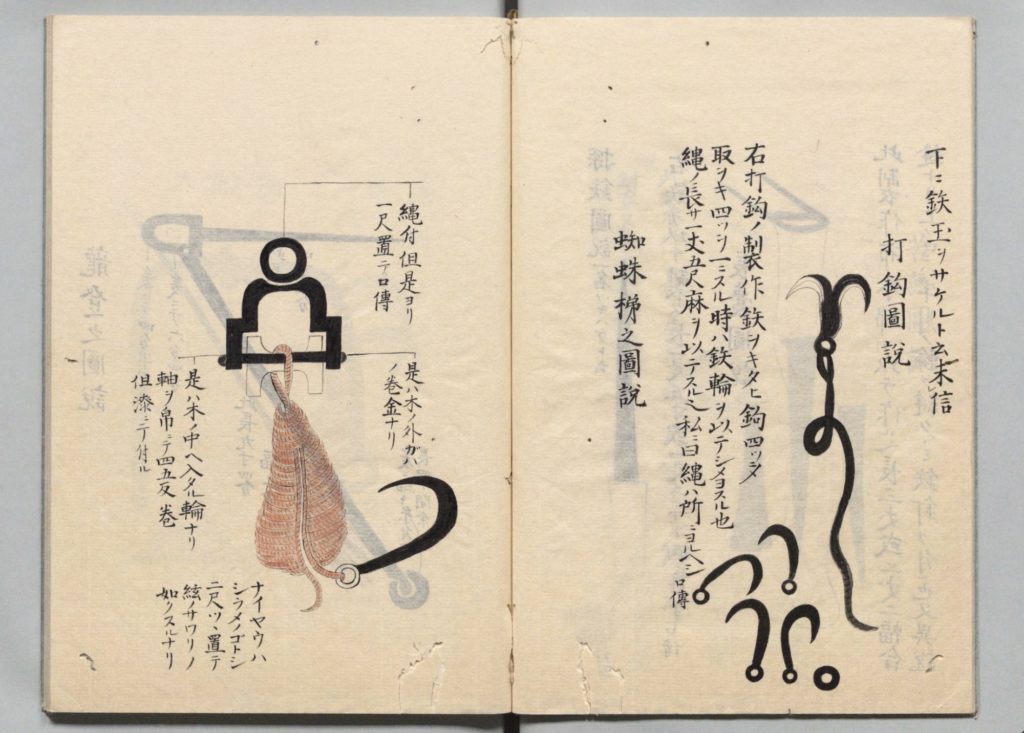 下ニ鉄玉ヲサケルト云末信
打鈎圖説
右打鈎ノ製作鉄ヲキタヒ鈎四ッヲ
取ヲキ四ッヲ一ニスル時ハ鉄輪ヲ以テシメヨスル也
縄ノ長サ一丈五尺麻ヲ以テスル私ニ曰縄ハ所ニヨルヘシ
口傳
蜘蛛梯之圖説
縄付但是ヨリ
一尺置テ口傳
是ハ木ノ外ガハ
ノ巻金ナリ
是ハ木ノ中ヘ入タル輪ナリ
軸ヲ帛ニテ四五反巻
但漆ニテ付ル
ナイヤウハ
シラメノゴトシ
二尺ツヽ置テ
絃ノサワリノ
如クスルナリ